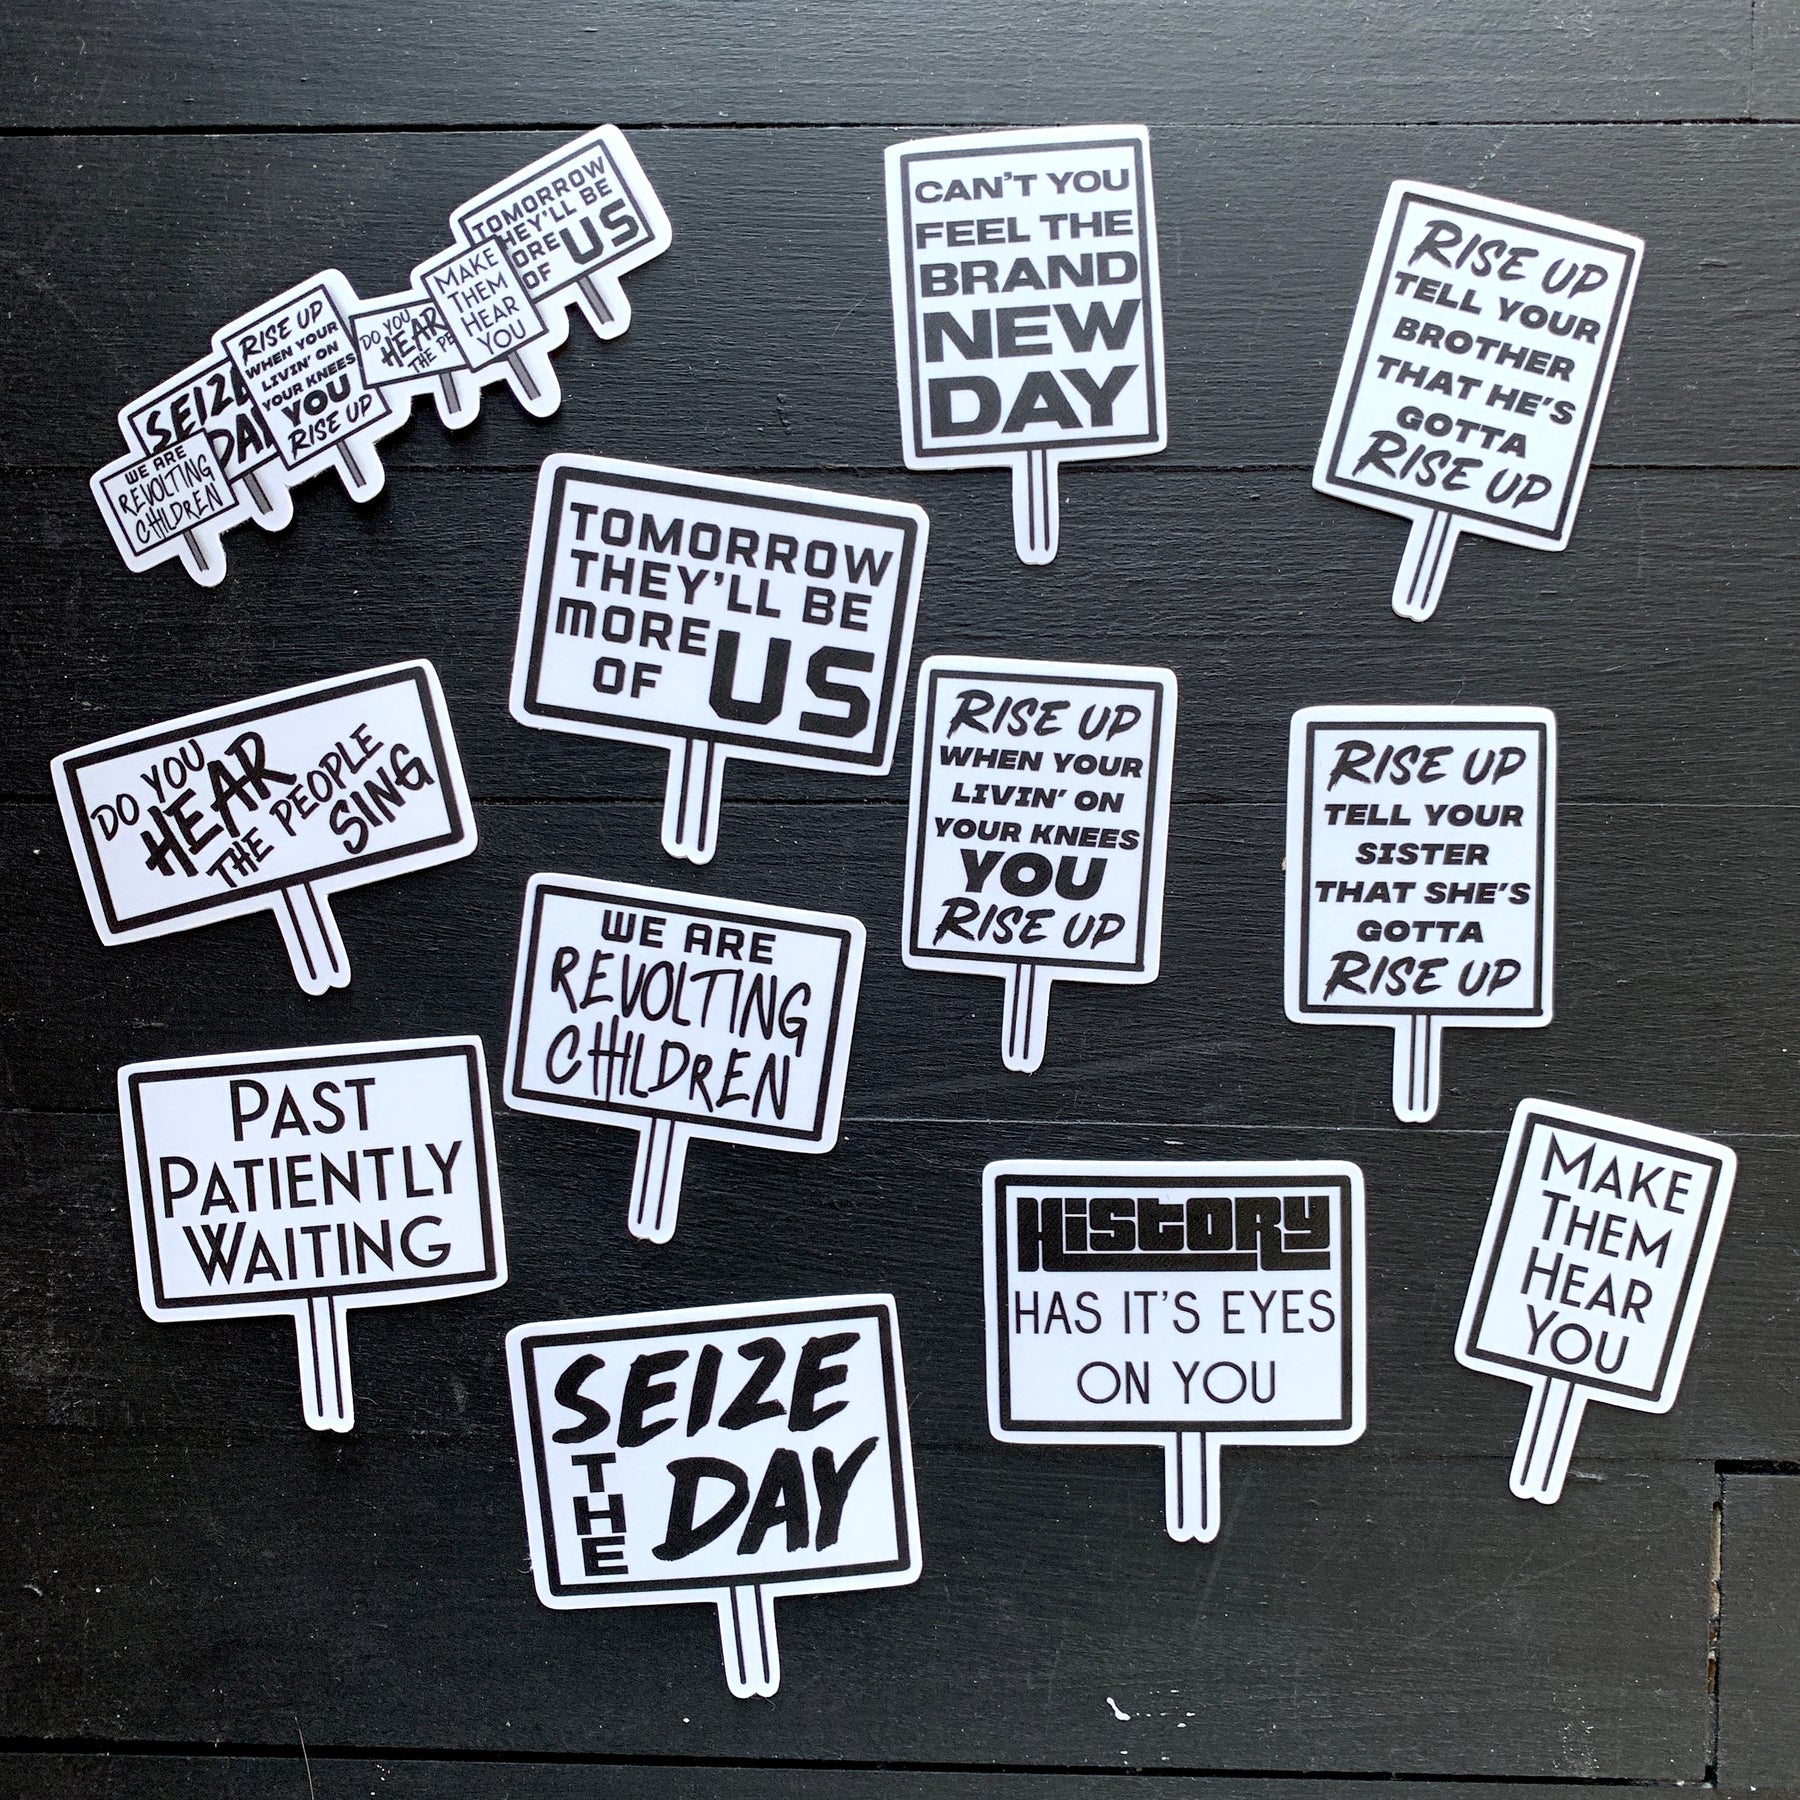 TOMORROW
THEY'LL BE
MORE
OF US
MAKE
THEM
HEAR
YOU
DO YOU
HEAR
THE PE
RISE UP
WHEN YOUR
LIVIN' ON
YOUR KNEES
YOU
RISE UP
SEIZE
DAY
WE ARE
REVOLTING
CHILDREN
CAN'T YOU
FEEL THE
BRAND
NEW
DAY
RISE UP
TELL YOUR
BROTHER
THAT HE'S
GOTTA
RISE UP
TOMORROW
THEY'LL BE
MORE
OF US
DO YOU
HEAR
THE PEOPLE
SING
RISE UP
WHEN YOUR
LIVIN' ON
YOUR KNEES
YOU
RISE UP
RISE UP
TELL YOUR
SISTER
THAT SHE'S
GOTTA
RISE UP
WE ARE
REVOLTING
CHILDREN
PAST
PATIENTLY
WAITING
HiSTORY
HAS IT'S EYES
ON YOU
MAKE
THEM
HEAR
YOU
SEIZE
THE
DAY